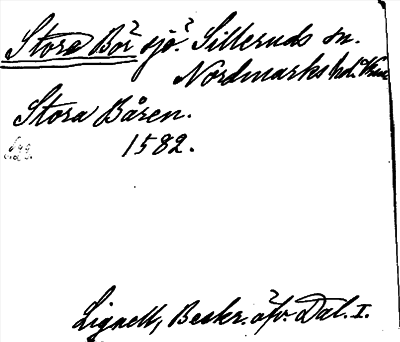 Stora Bor? sjö? Silleruds sn.
Nordmarks hd. Vrml.
Stora Båren.
1582.
Lignell, Beskr. öfv. Dal. I.